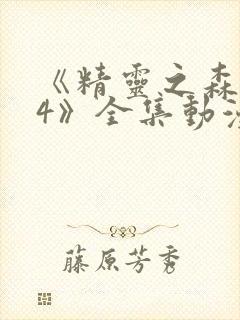 《精靈之森
4》全集動漫
藤原芳秀